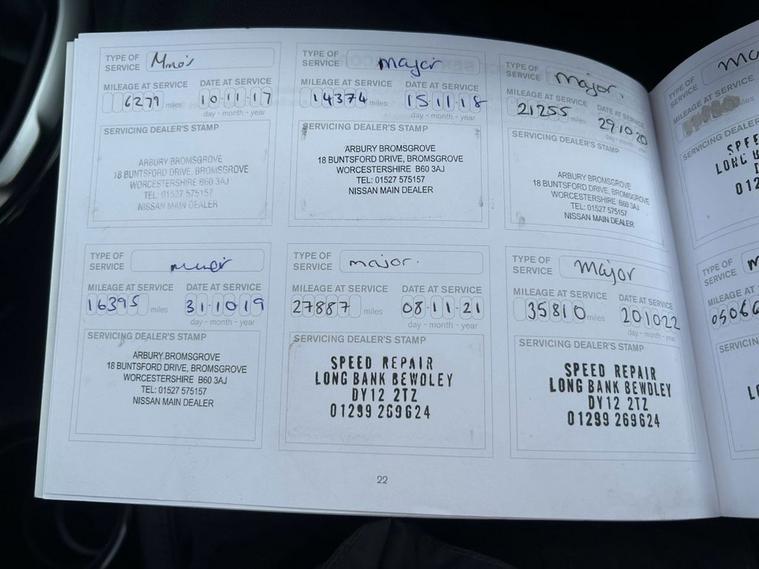 TYPE OF SERVICE Minor
MILEAGE AT SERVICE DATE AT SERVICE
6279 miles 10 11 17
day - month - year
SERVICING DEALER'S STAMP
ARBURY BROMSGROVE
18 BUNTSFORD DRIVE, BROMSGROVE
WORCESTERSHIRE B60 3AJ
TEL: 01527 575157
NISSAN MAIN DEALER
TYPE OF SERVICE major
MILEAGE AT SERVICE DATE AT SERVICE
14374 miles 15 11 18
day - month - year
SERVICING DEALER'S STAMP
ARBURY BROMSGROVE
18 BUNTSFORD DRIVE, BROMSGROVE
WORCESTERSHIRE B60 3AJ
TEL: 01527 575157
NISSAN MAIN DEALER
TYPE OF SERVICE major.
MILEAGE AT SERVICE DATE AT SERVICE
21255 miles 29 10 20
day - month - year
SERVICING DEALER'S STAMP
ARBURY BROMSGROVE
18 BUNTSFORD DRIVE, BROMSGROVE
WORCESTERSHIRE B60 3AJ
TEL: 01527 575157
NISSAN MAIN DEALER
TYPE OF SERVICE minor
MILEAGE AT SERVICE DATE AT SERVICE
16395 miles 31 10 19
day - month - year
SERVICING DEALER'S STAMP
ARBURY BROMSGROVE
18 BUNTSFORD DRIVE, BROMSGROVE
WORCESTERSHIRE B60 3AJ
TEL: 01527 575157
NISSAN MAIN DEALER
TYPE OF SERVICE major.
MILEAGE AT SERVICE DATE AT SERVICE
27887 miles 08 11 21
day - month - year
SERVICING DEALER'S STAMP
SPEED REPAIR
LONG BANK BEWDLEY
DY12 2TZ
01299 269624
TYPE OF SERVICE Major
MILEAGE AT SERVICE DATE AT SERVICE
35810 miles 20 10 22
day - month - year
SERVICING DEALER'S STAMP
SPEED REPAIR
LONG BANK BEWDLEY
DY12 2TZ
01299 269624
22
TYPE OF SERVICE
MILEAGE AT SERVICE
SERVICING DEALER
LONG
TYPE OF SERVICE
MILEAGE AT